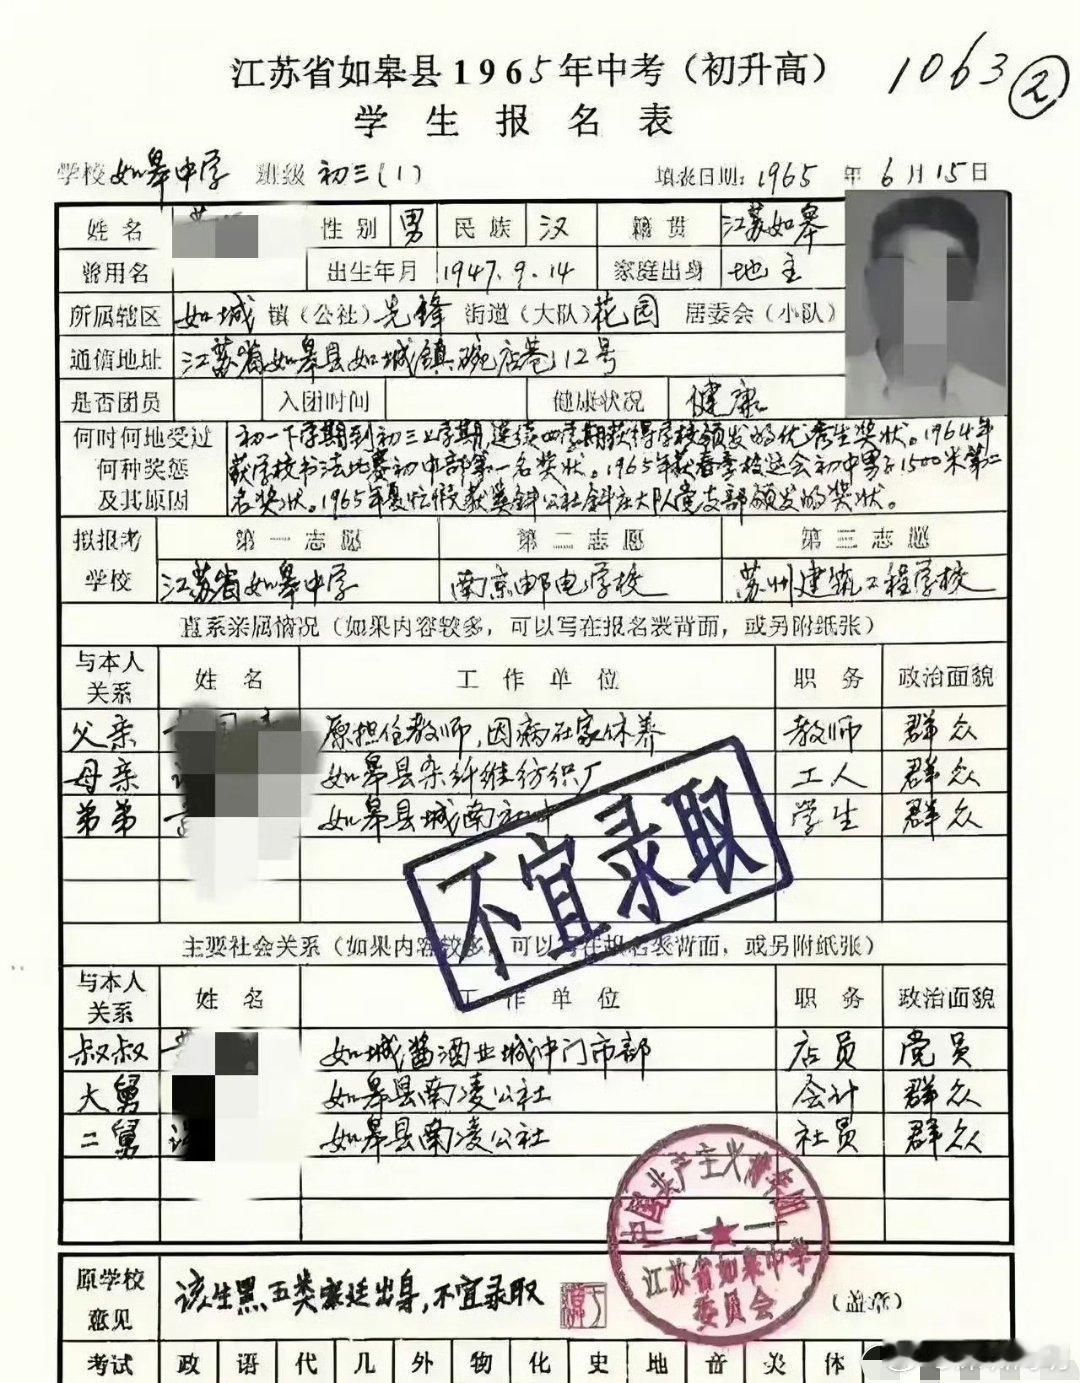 江苏省如皋县1965年中考（初升高）
1063 ②
学生报名表
学校 如皋中学 班级 初三(1) 填表日期：1965年6月15日
姓名 性别 男 民族 汉 籍贯 江苏如皋
曾用名 出生年月 1947.9.14 家庭出身 地主
所属辖区 如城镇（公社）先锋街道（大队）花园 居委会（小队）
通信地址 江苏省如皋县如城镇碗店巷112号
是否团员 入团时间 健康状况 健康
何时何地受过何种奖惩及其原因
初一下学期到初三上学期，连续四学期获得学校颁发的优秀生奖状。1964年
获学校书法比赛初中部第一名奖状。1965年获春季校运会初中男子1500米第二
名奖状。1965年夏忙假获公社大队党支部颁发的奖状。
拟报考学校 第一志愿 第二志愿 第三志愿
江苏省如皋中学 南京邮电学校 苏州建筑工程学校
直系亲属情况（如果内容较多，可以写在报名表背面，或另附纸张）
与本人关系 姓名 工作单位 职务 政治面貌
父亲 原担任教师，因病在家休养 教师 群众
母亲 如皋县杂纤维纺织厂 工人 群众
弟弟 如皋县城南社中 学生 群众
不宜录取
主要社会关系（如果内容较多，可以写在报名表背面，或另附纸张）
与本人关系 姓名 工作单位 职务 政治面貌
叔叔 如城酱酒业城中门市部 店员 党员
大舅 如皋县南凌公社 会计 群众
二舅 如皋县南凌公社 社员 群众
中国共产主义青年团
江苏省如皋中学
委员会
原学校意见 该生黑五类家庭出身，不宜录取 （盖章）
考试 政 语 代 几 外 物 化 史 地 音 美 体